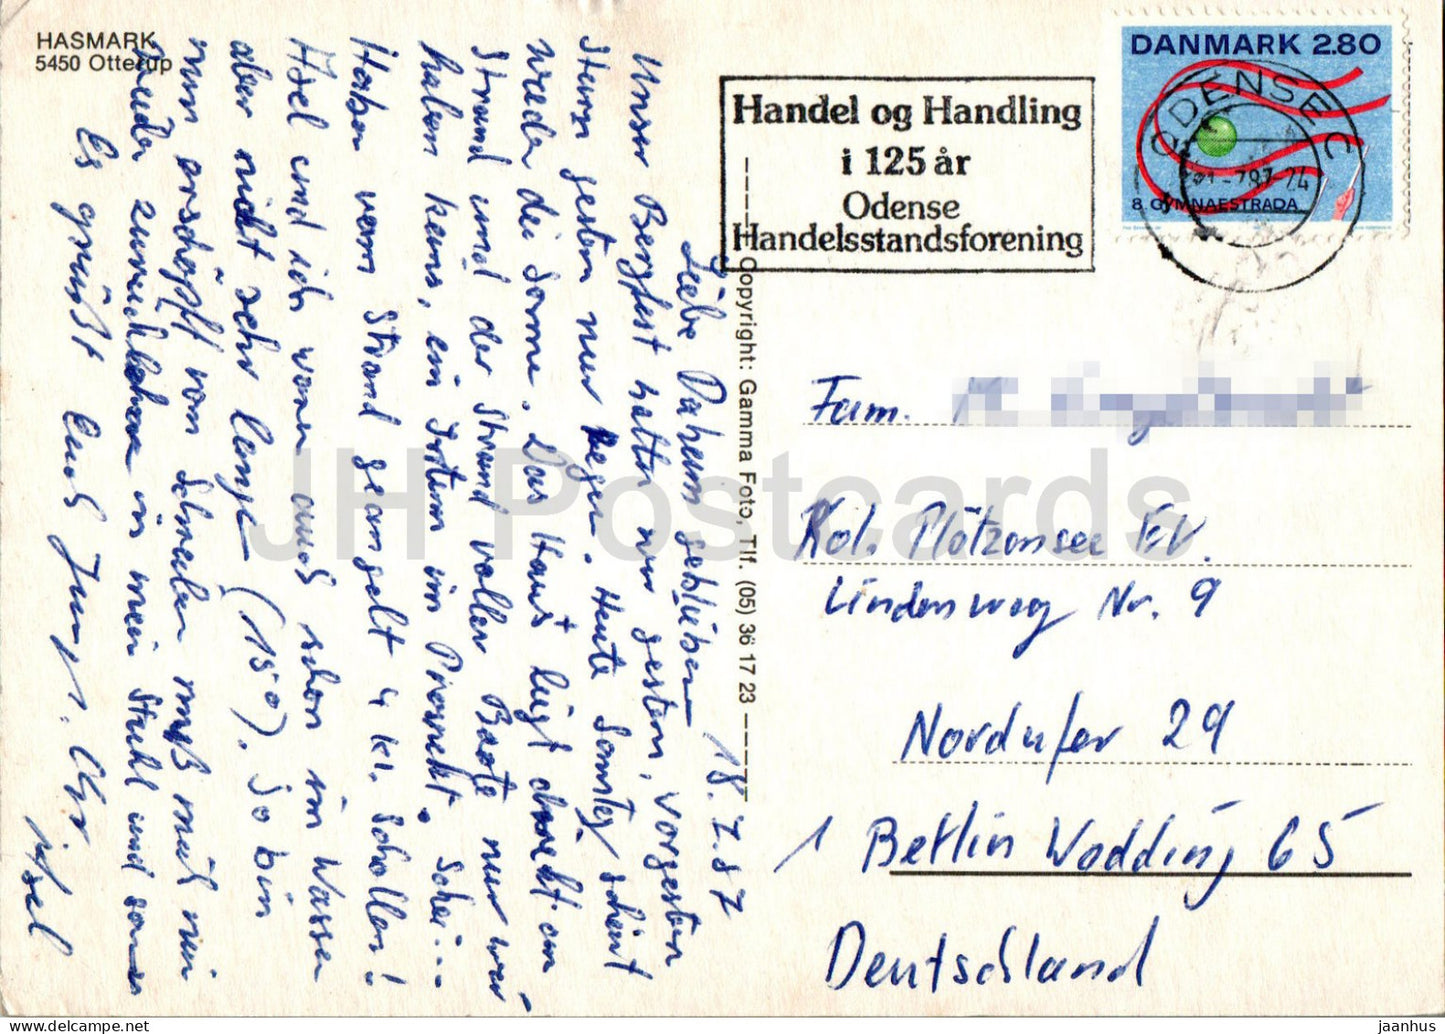 HASMARK
5450 Otterup
DANMARK 2.80
8. GYMNAESTRADA
ODENSE C
Handel og Handling
i 125 år
Odense
Handelsstandsforening
Copyright: Gamma Foto, Tlf. (05) 36 17 23
18.7.87
Liebe Daheimgebliebenen
Unser Bergfest hatten wir gestern, vorgestern
Sturm gestern nur Regen. Heute Sonntag scheint
wieder die Sonne. Das Haus liegt direkt am
Strand und der Strand voller Boote nur wir
haben keins, ein Intern im Prospekt.
Haben vom Strand geangelt 4 kl. Schollen!
und ich waren auch schon im Wasser
aber nicht sehr lange (15°). So bin
nun erschöpft vom Schreiben muß mich
wieder zurücklehnen in mein Stuhl und
Es grüßt Euch
Axel
Fam.
Kol. Plötzensee E.V.
Lindenweg Nr. 9
Nordufer 29
1 Berlin Wedding 65
Deutschland
JH Postcards
delcampe.net
jaanhus